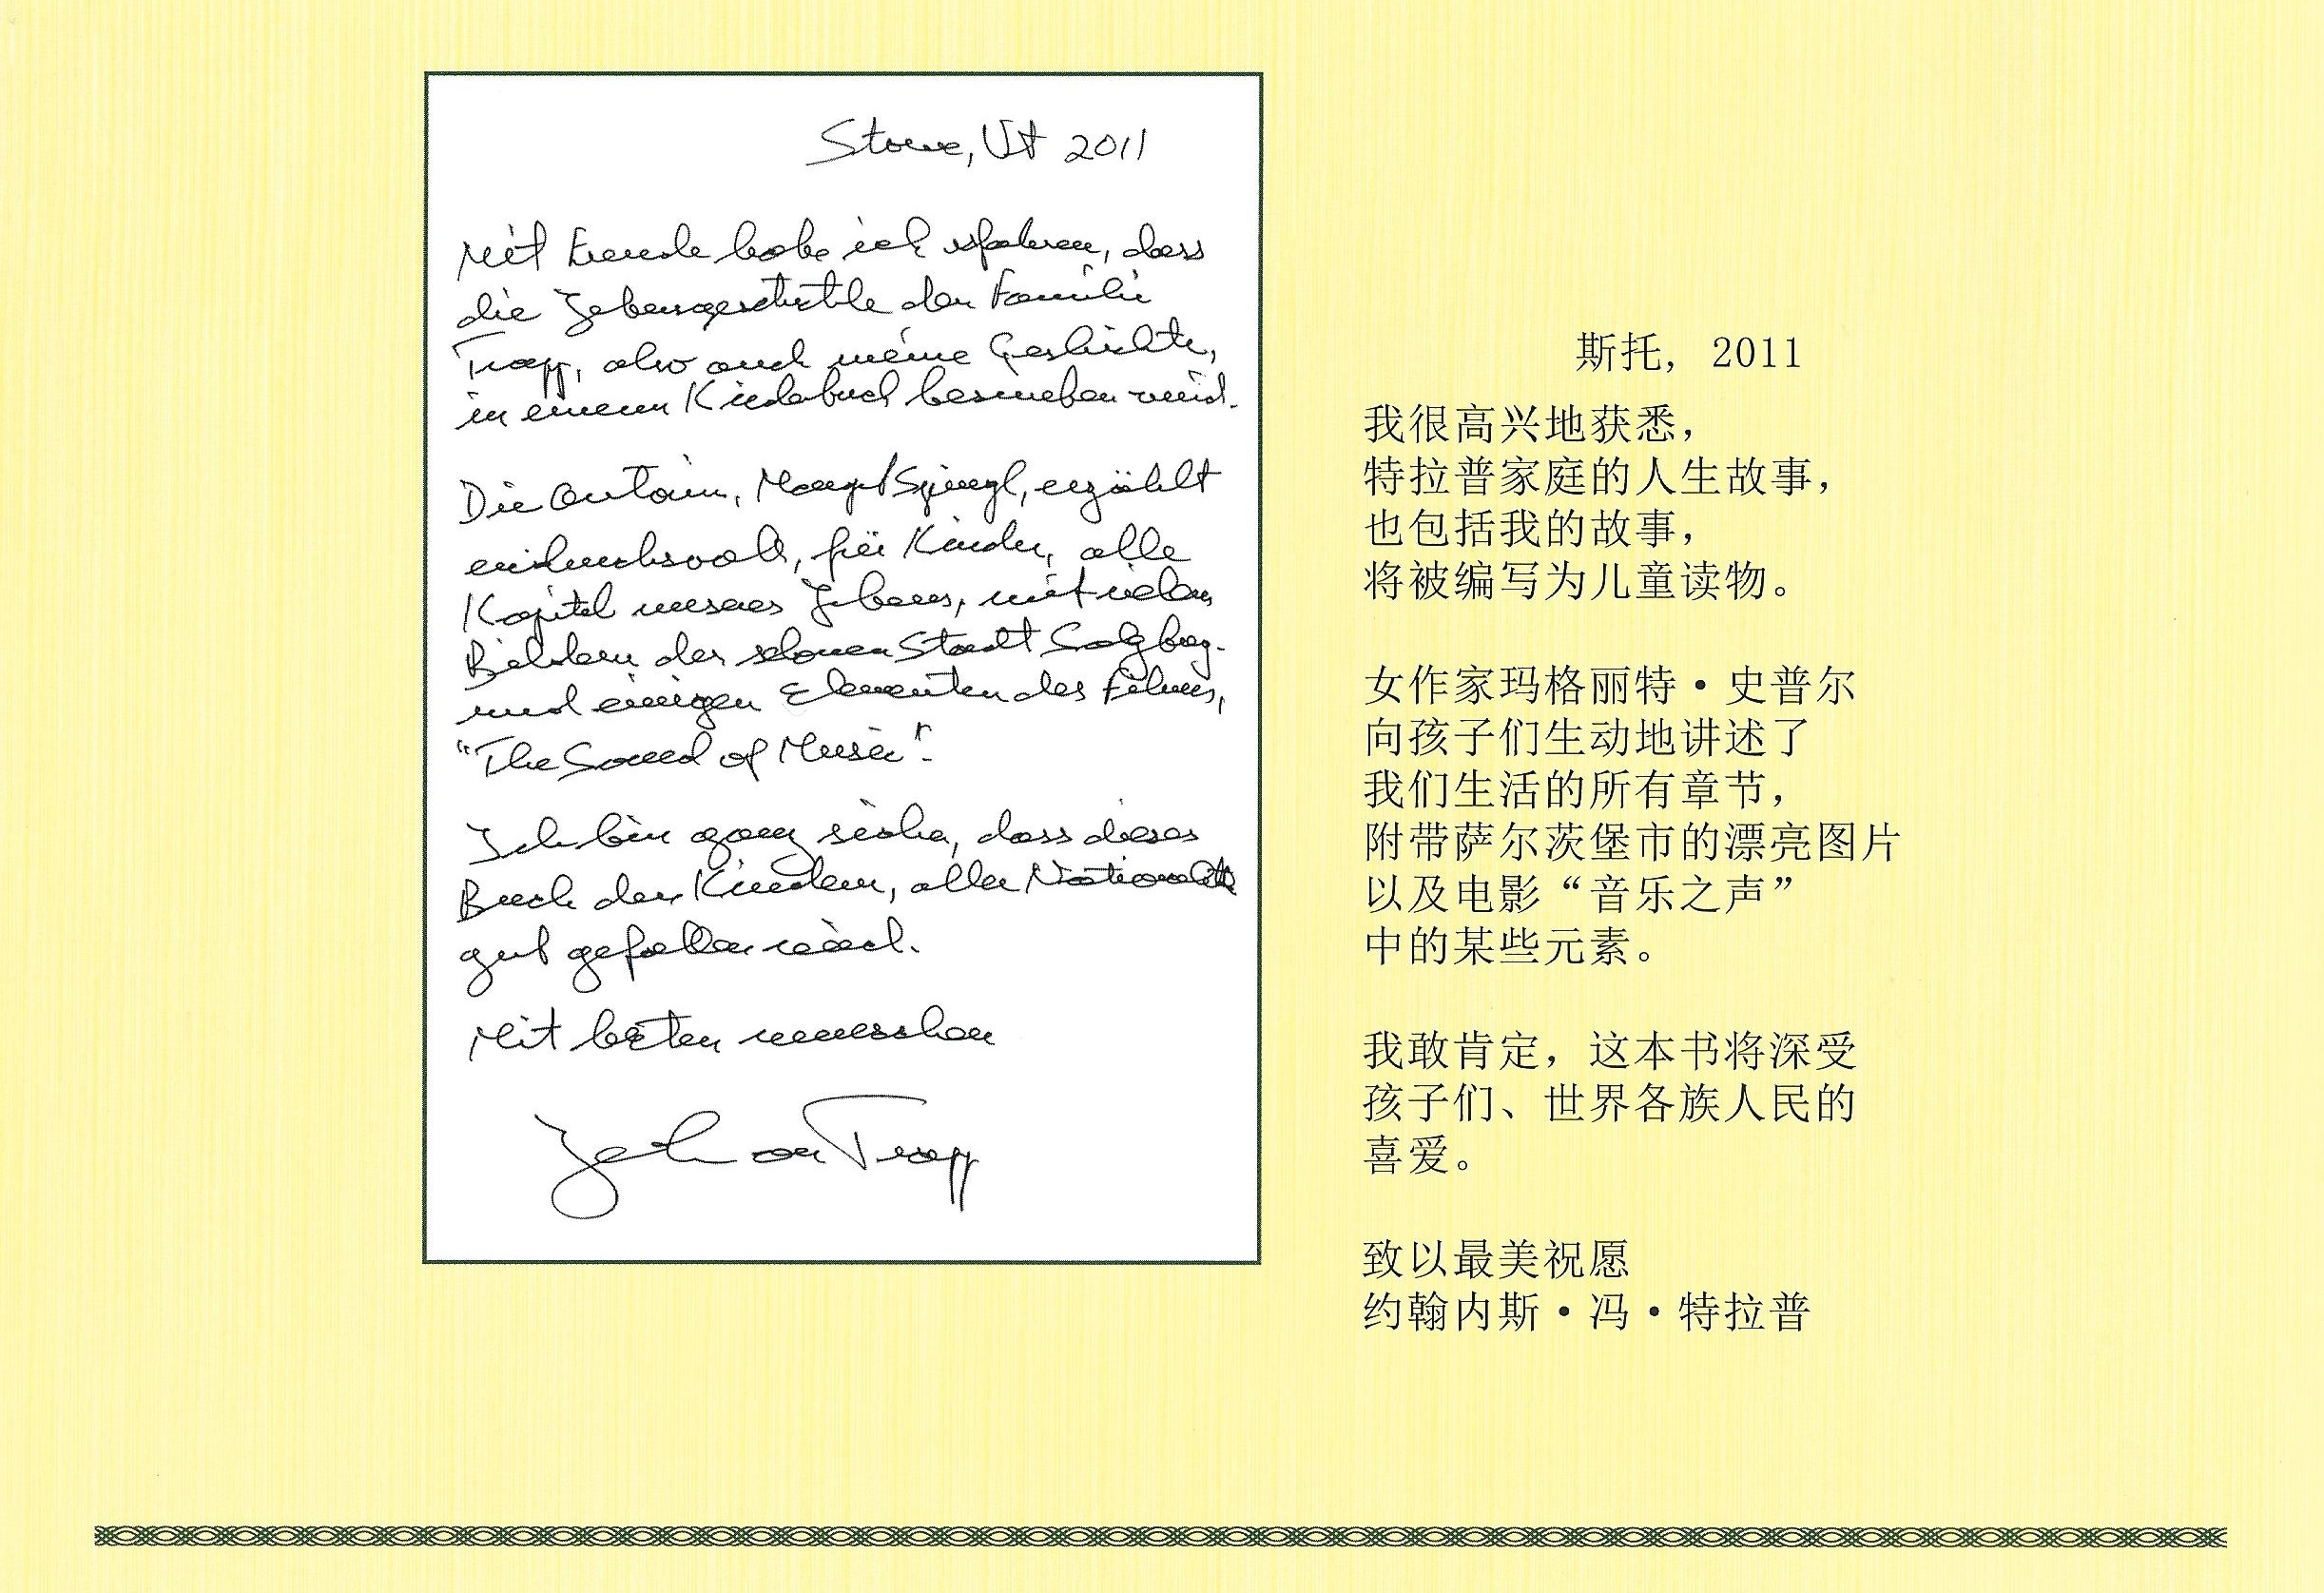 Stowe, Vt 2011
Mit Freude habe ich erfahren, dass
die Lebensgeschichte der Familie
Trapp, also auch meine Geschichte,
in einem Kinderbuch beschrieben wird.
Die Autorin, erzählt
eindrucksvoll, für Kinder, alle
Kapitel unseres Lebens, mit vielen
Bildern der schönen Stadt Salzburg
und einigen Elementen des Films,
"The Sound of Music".
Ich bin ganz sicher, dass dieses
Buch den Kindern, aller
gut gefallen wird.
Mit besten wuenschen
Joh von Trapp
斯托, 2011
我很高兴地获悉，
特拉普家庭的人生故事，
也包括我的故事，
将被编写为儿童读物。
女作家玛格丽特•史普尔
向孩子们生动地讲述了
我们生活的所有章节，
附带萨尔茨堡市的漂亮图片
以及电影“音乐之声”
中的某些元素。
我敢肯定，这本书将深受
孩子们、世界各族人民的
喜爱。
致以最美祝愿
约翰内斯•冯•特拉普